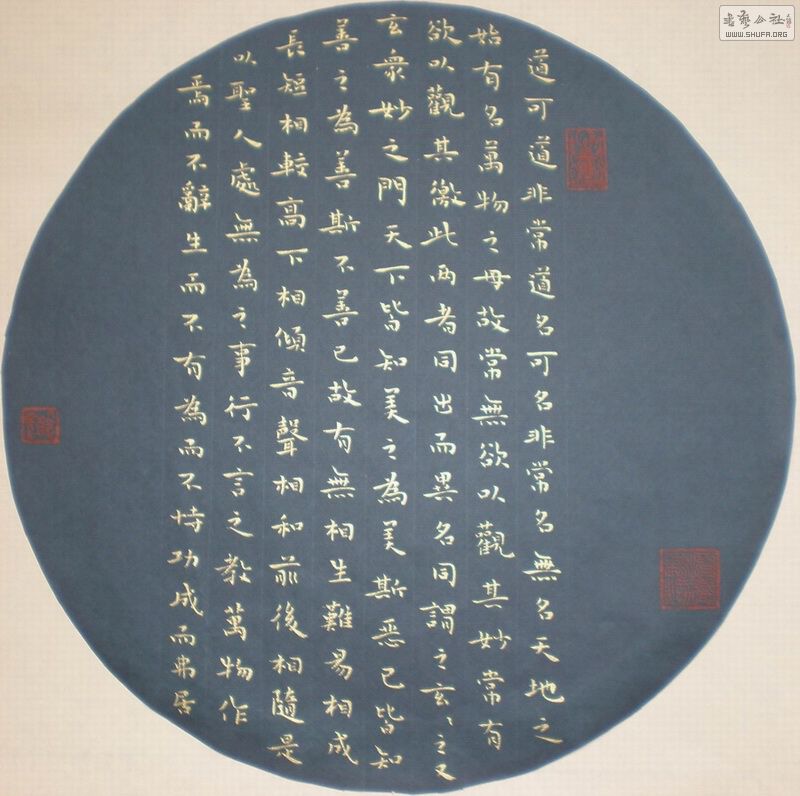 道可道非常道名可名非常名無名天地之
始有名萬物之母故常無欲以觀其妙常有
欲以觀其徼此两者同出而異名同謂之玄〻之又
玄衆妙之門天下皆知美之為美斯恶已皆知
善之為善斯不善已故有無相生難易相成
長短相較高下相傾音聲相和前後相隨是
以聖人處無為之事行不言之教萬物作
焉而不辭生而不有為而不恃功成而弗居
WWW.SHUFA.ORG